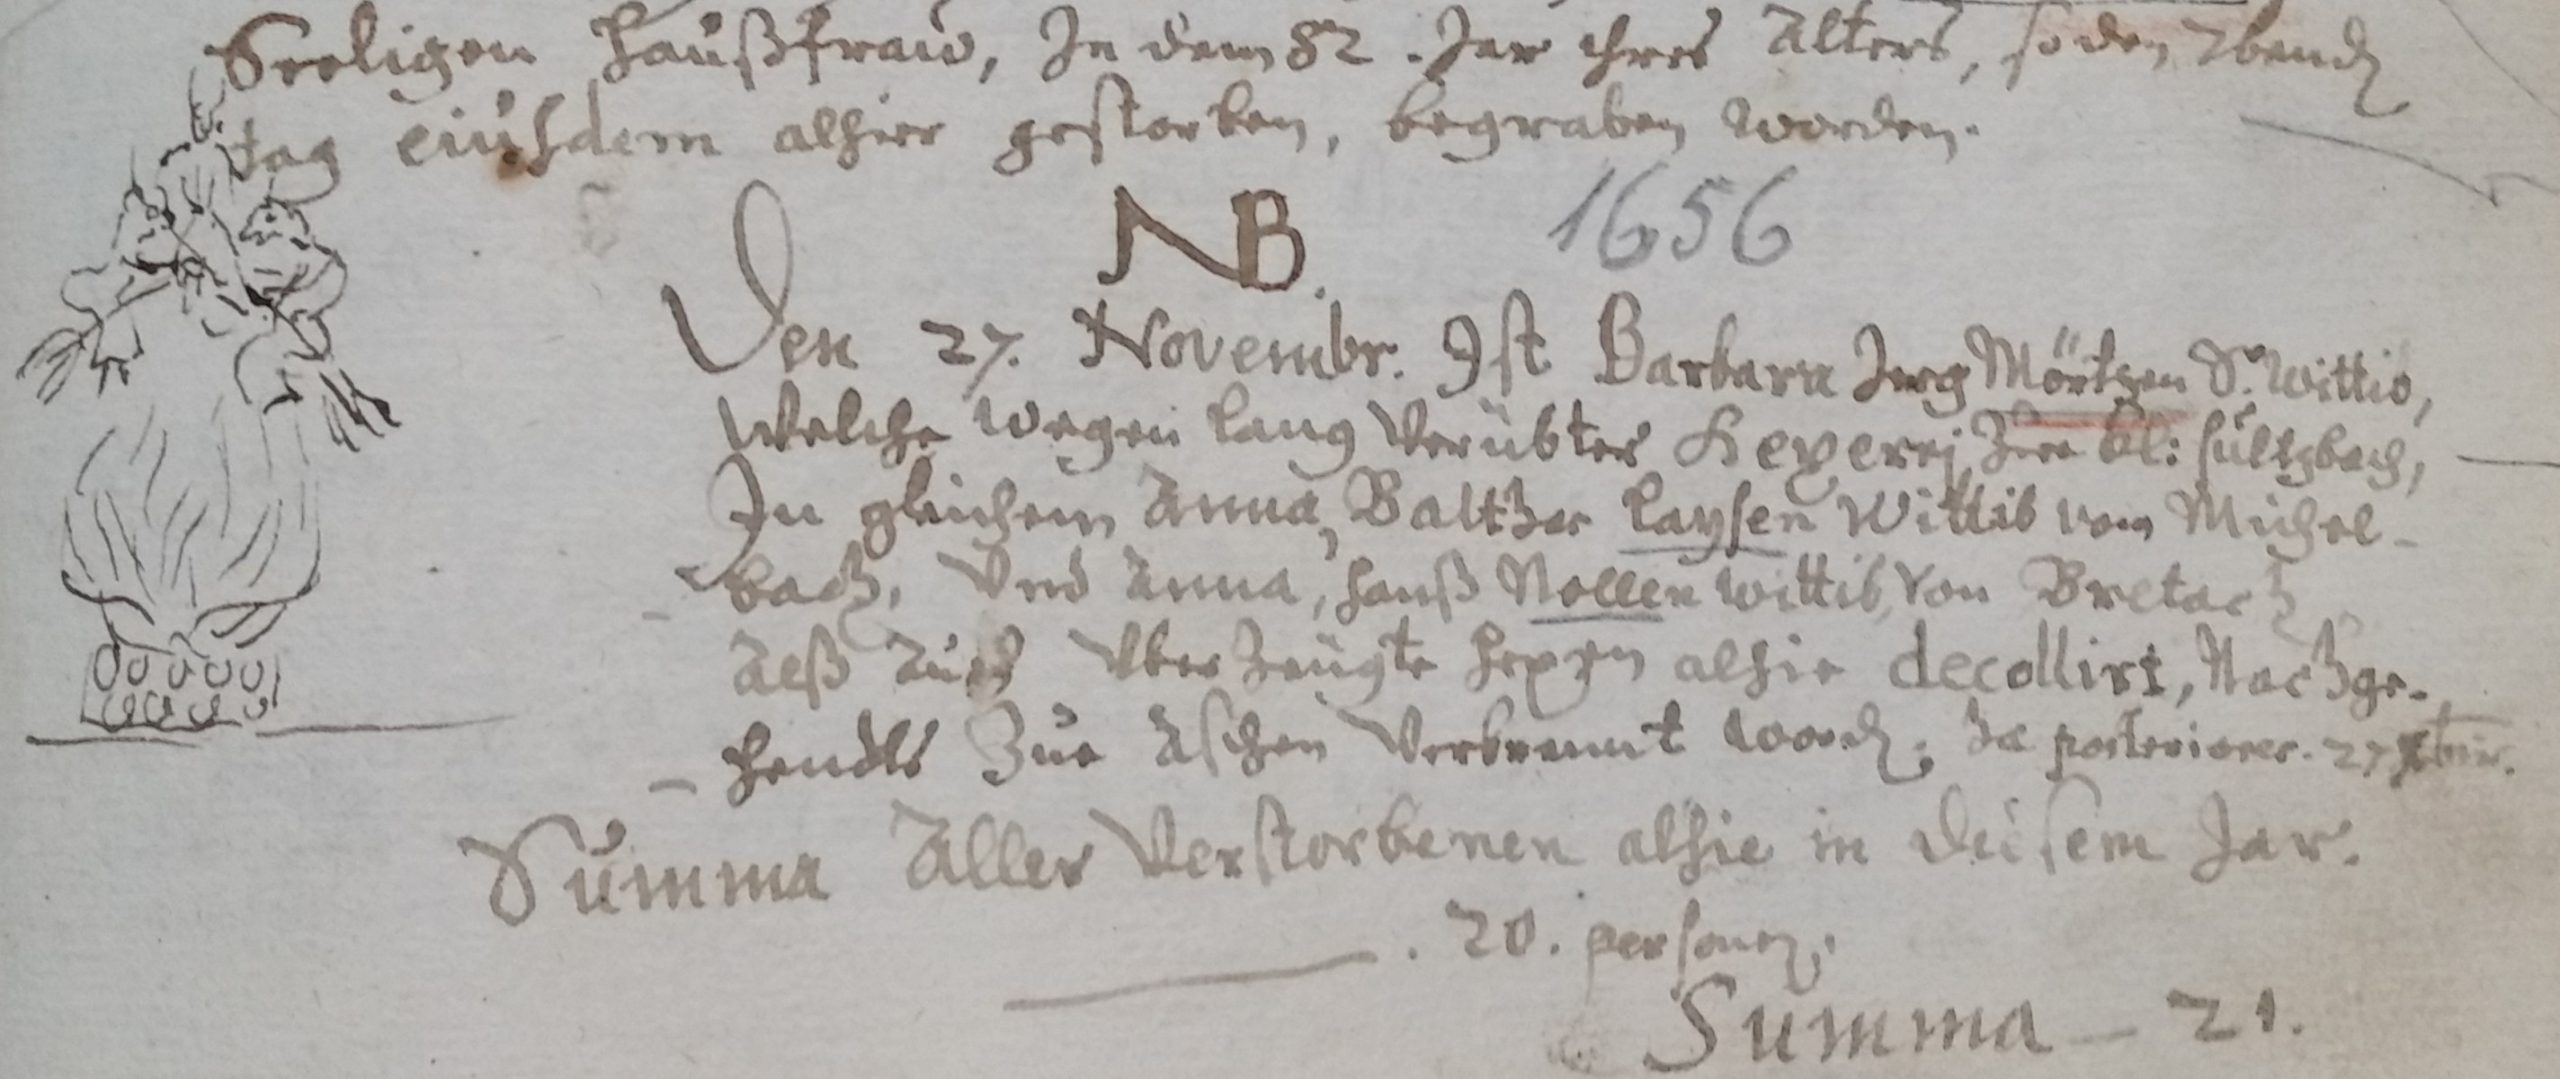 Seeligen Haußfraw, In dem 82. Jar ihres Alters, so den Abend
tag eiusdem alhier gestorben, begraben worden.
NB. 1656
Den 27. Novembr. Ist Barbara Jerg Mörtzen S. Wittib,
Welche wegen lang Verübter Hexerej Zue kl: sultzbach,
In gleichem Anna, Baltzer Laysen Wittib vom Michel-
bach, Und Anna, Hanß Nollen wittib, Von Bretach
Alß Uber Zeügte Hexen alhie decollirt, Nachge-
hendts Zue Aschen Verbrennt word.
Summa Aller Verstorbenen alhie in diesem Jar.
. 20. personen.
Summa – 21.